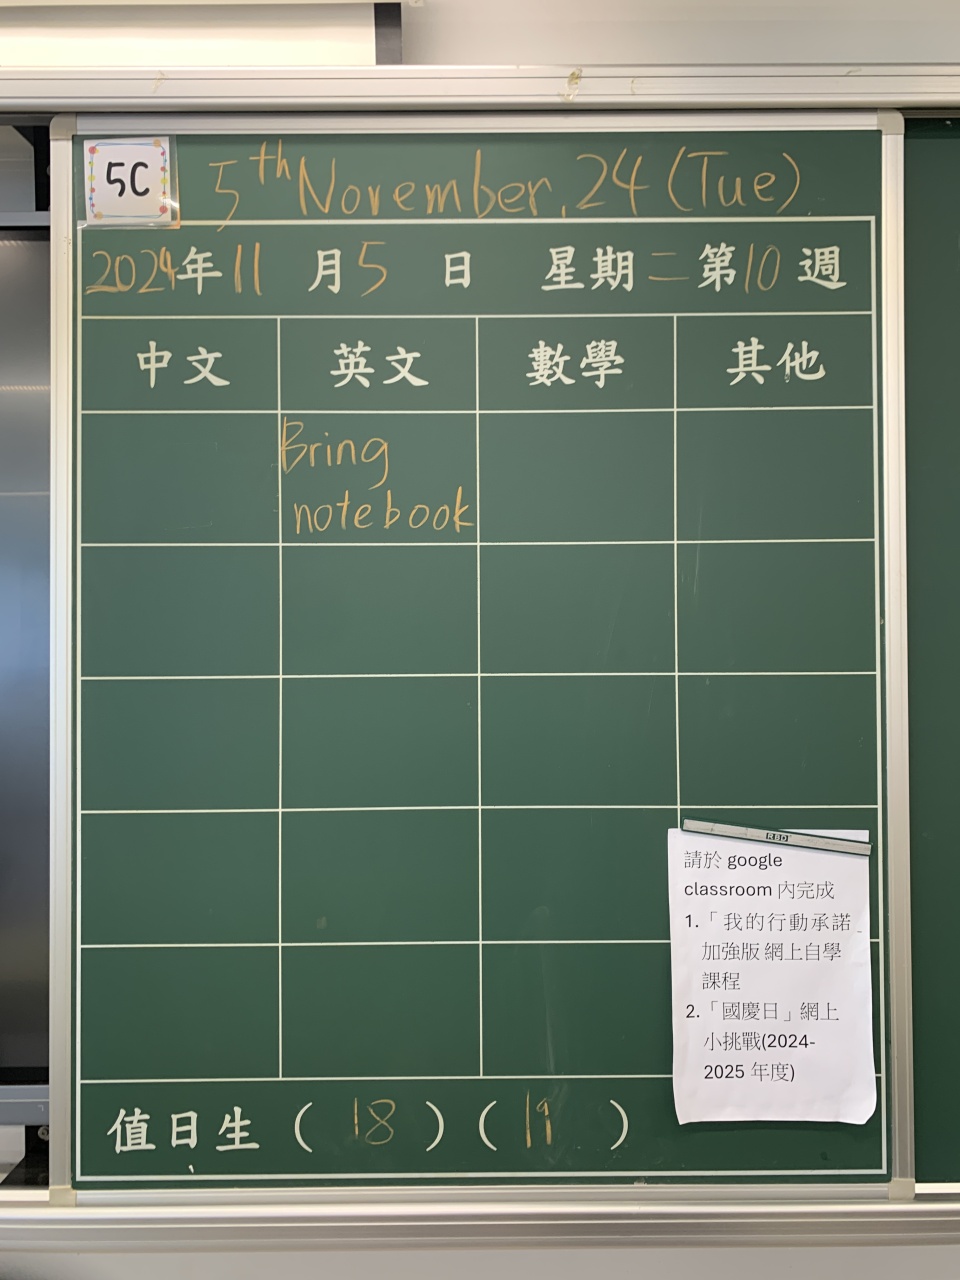 5C
5th November, 24 (Tue)
2024年11月5日 星期二第10週
中文 英文 數學 其他
Bring
notebook
RBD
請於 google
classroom 內完成
1.「我的行動承諾
加強版 網上自學
課程
2.「國慶日」網上
小挑戰(2024-
2025 年度)
值日生 ( 18 ) ( 19 )